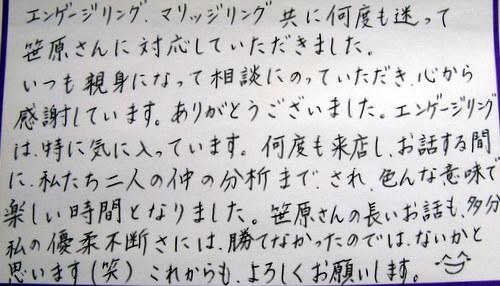 エンゲージリング、マリッジリング 共に何度も迷って
笹原さんに対応していただきました。
いつも親身になって相談にのっていただき、心から
感謝しています。ありがとうございました。エンゲージリング
は、特に気に入っています。何度も来店し、お話する間
に、私たち二人の仲の分析まで、され、色んな意味で
楽しい時間となりました。笹原さんの長いお話も、多分
私の優柔不断さには、勝てなかったのでは、ないかと
思います(笑) これからも、よろしくお願いします。